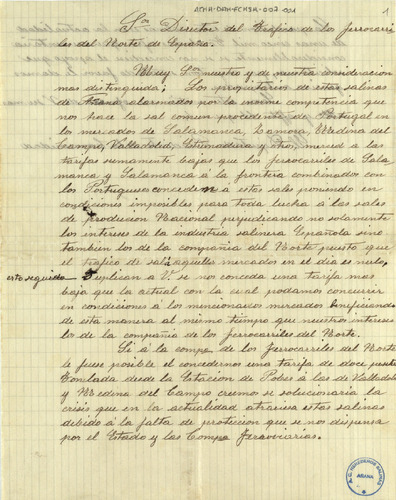 ATHA-DAH-FCHSA-002-021
1
Sor Director del Trafico de los ferrocarri
les del Norte de España.
Muy Sor nuestro y de nuestra consideracion
mas distinguida; Los propietarios de estas salinas
de Añana alarmados por la enorme competencia que
nos hace la sal comun procedente de Portugal en
los mercados de Salamanca, Zamora, Medina del
Campo, Valladolid, Extremadura y otros, merced a las
tarifas sumamente bajas que los ferrocarriles de Sala
manca y Salamanca á la frontera combinados con
los Portugueses conceden á estas sales poniendo en
condiciones imposibles para toda lucha á las sales
de producion Nacional perjudicando no solamente
los interes de la industria salinera Española sino
tambien los de la compañia del Norte puesto que
el trafico de sal á aquellos mercados en el dia es nulo,
esto seguido Suplican a V. se nos conceda una tarifa mas
baja que la actual con la cual podamos concurrir
en condiciones á los mencionados mercados beneficiando
de esta manera al mismo tiempo que nuestros intereses
los de la compañia de los ferrocarriles del Norte.
Si á la compa de los Ferrocarriles del Norte
le fuese posible el concedernos una tarifa de doce pesetas
Tonelada desde la Estacion de Pobes á las de Valladolid
y Medina del Campo creemos se solucionaria la
crisis que en la actualidad atraviesa estas salinas
debido á la falta de proteccion que se nos dispensa
por el Estado y las Compas Ferroviarias.
HEREDEROS SALINAS
AÑANA